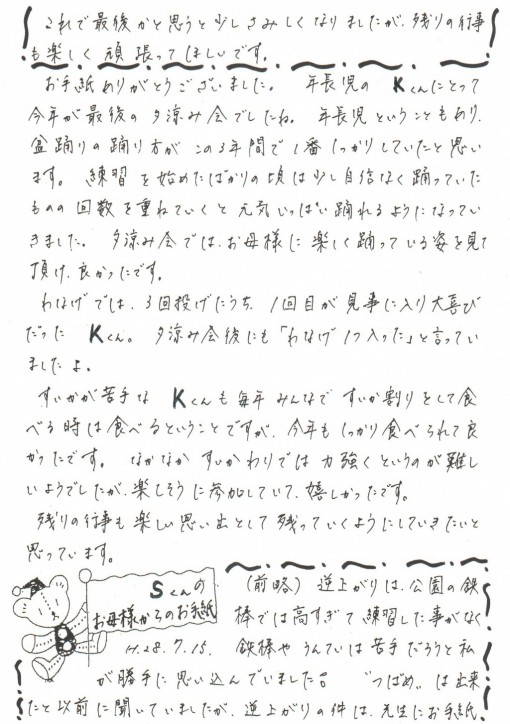 これで最後かと思うと少しさみしくなりましたが、残りの行事
も楽しく頑張ってほしいです。
お手紙ありがとうございました。 年長児の Kくんにとって
今年が最後の夕涼み会でしたね。年長児ということもあり、
盆踊りの踊り方が この3年間で1番しっかりしていたと思い
ます。 練習を始めたばかりの頃は少し自信なく踊っていた
ものの回数を重ねていくと元気いっぱい踊れるようになってい
きました。 夕涼み会では、お母様に楽しく踊っている姿を見て
頂け、良かったです。
わなげでは、3回投げたうち、1回目が見事に入り大喜び
だった Kくん。 夕涼み会後にも「わなげ1つ入った」と言ってい
ましたよ。
すいかが苦手な Kくんも毎年みんなですいか割りをして食
べる時は食べるということですが、今年もしっかり食べられて良
かったです。 なかなか すいかわりでは力強くというのが難し
いようでしたが、楽しそうに参加していて、嬉しかったです。
残りの行事も楽しい思い出として残っていくようにしていきたいと
思っています。
Sくんの
お母様からのお手紙
H.28.7.15.
(前略) 逆上がりは、公園の鉄
棒では高すぎて練習した事がなく
鉄棒やうんていは苦手だろうと私
が勝手に思い込んでいました。 "つばめ"は出来
たと以前に聞いていましたが、逆上がりの件は、先生にお手紙、